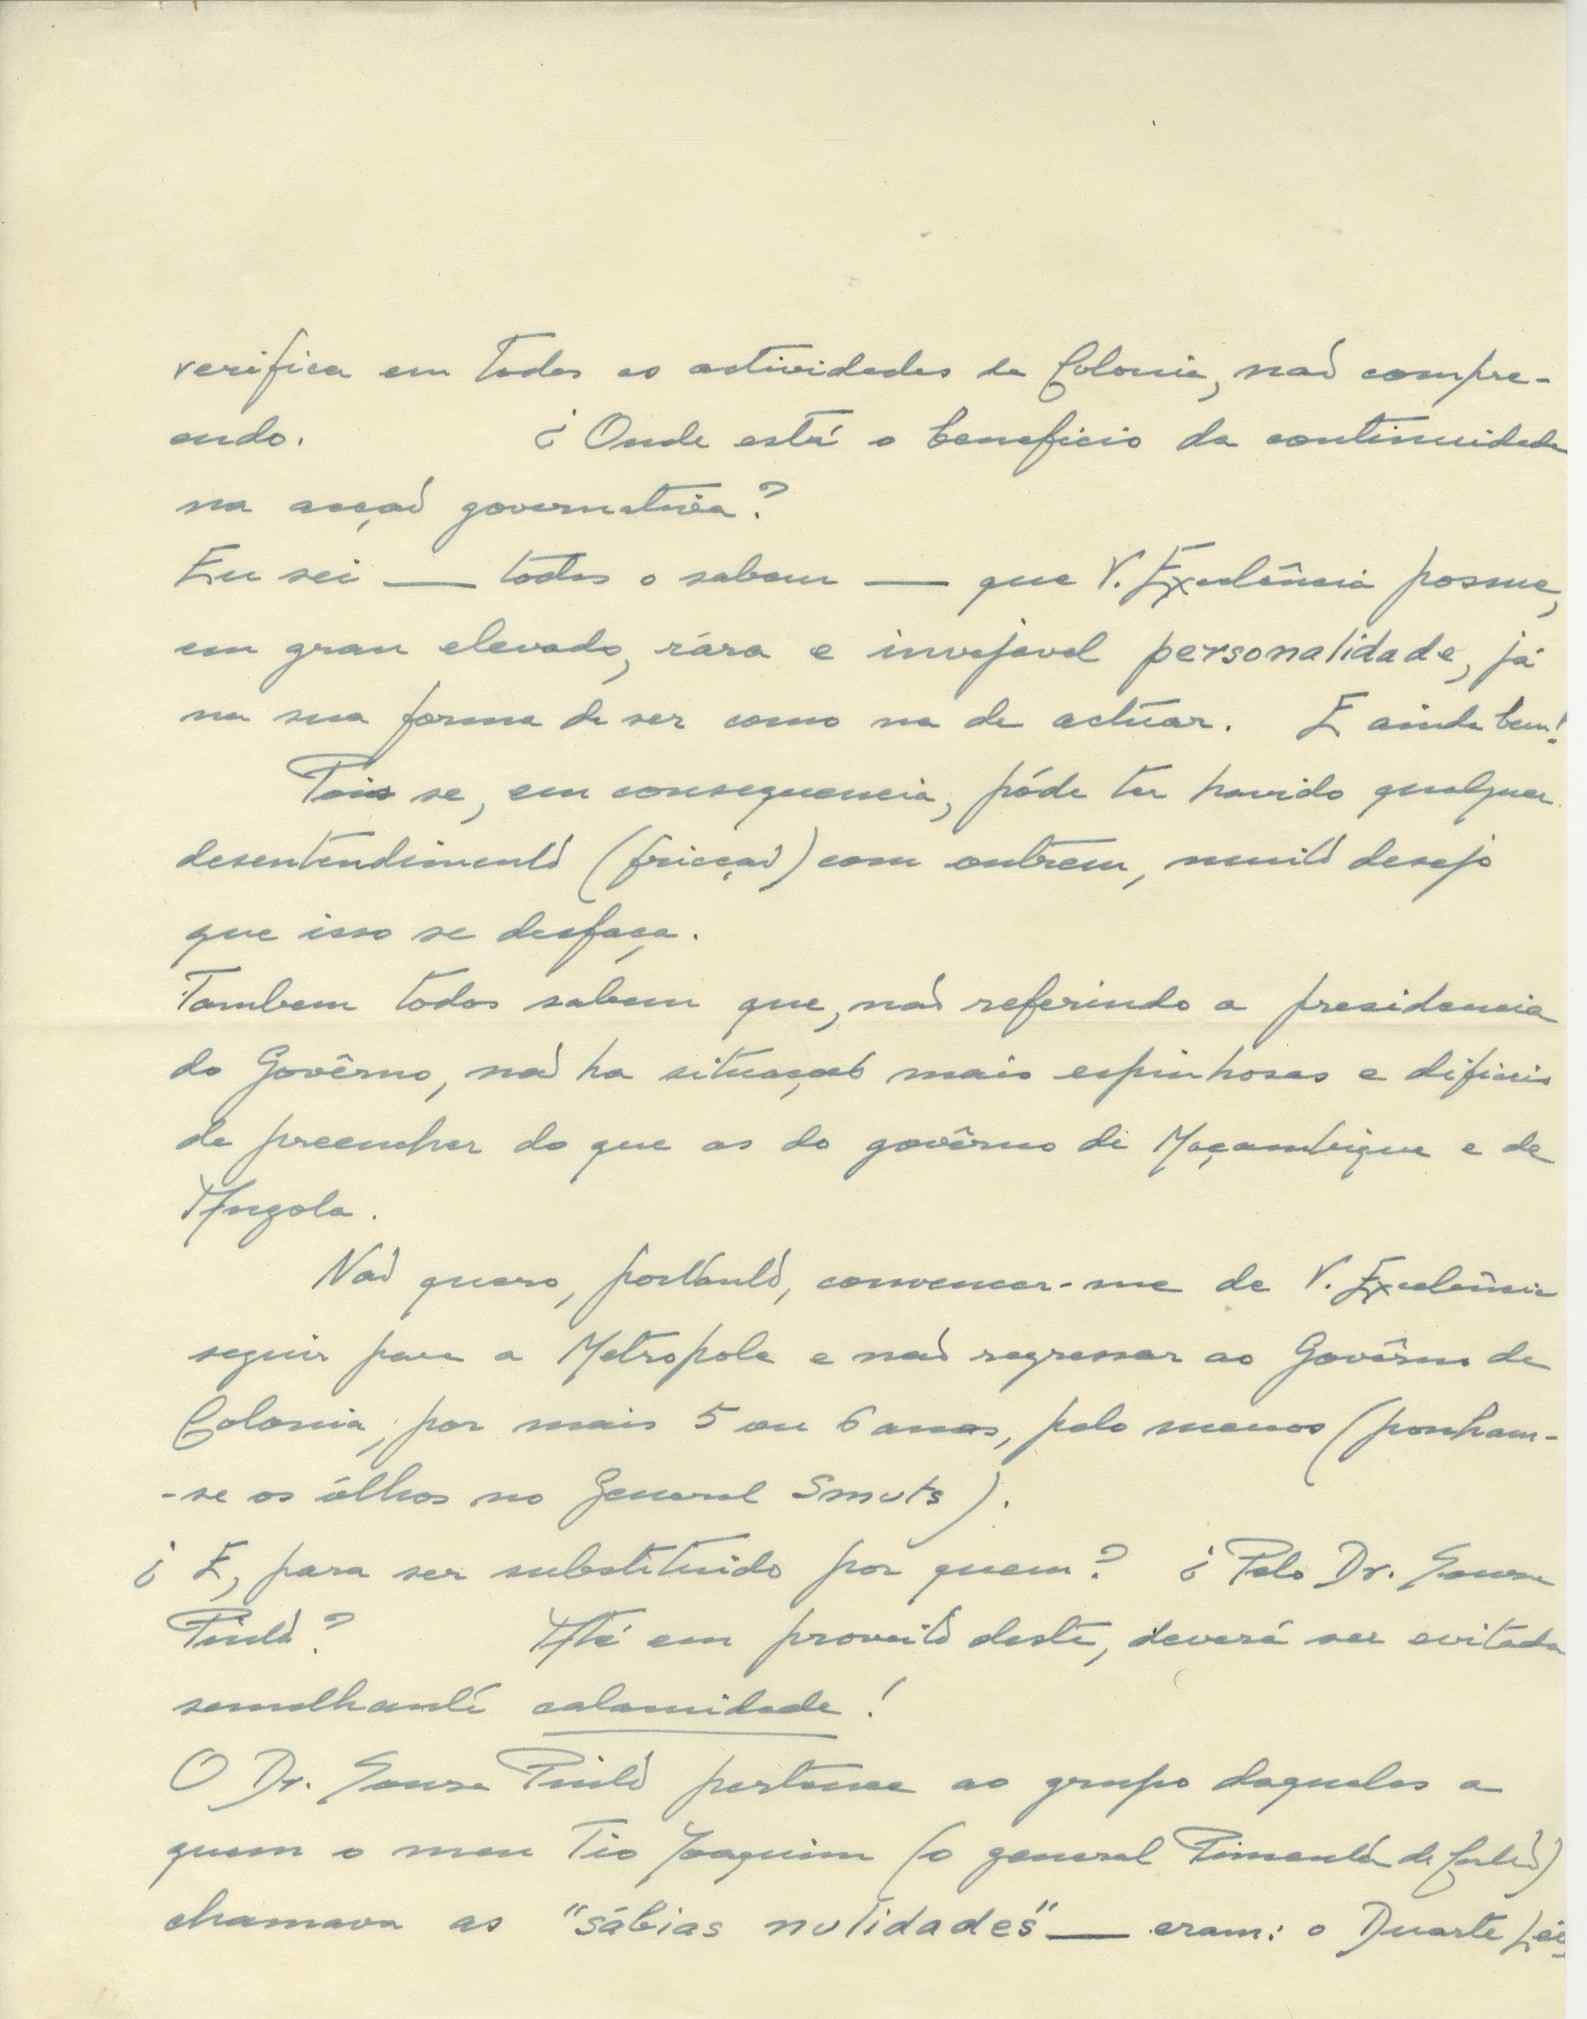 verifica em todas as actividades da Colonia, não compre-
endo. ¿ Onde está o beneficio da continuidade
na acção governativa?
Eu sei — todos o sabem — que V. Excelência possue,
em grau elevado, rára e invejavel personalidade, já
na sua forma de ser como na de actuar. E ainda bem!
Pois se, em consequencia, póde ter havido qualquer
desentendimento (fricção) com outrem, muito desejo
que isso se desfaça.
Tambem todos sabem que, não referindo a presidencia
do Govêrno, não ha situações mais espinhosas e dificeis
de preencher do que as do govêrno de Moçambique e de
Angola.
Não quero, portanto, convencer-me de V. Excelência
seguir para a Metropole e não regressar ao Govêrno da
Colonia, por mais 5 ou 6 anos, pelo menos (ponham-
-se os ólhos no General Smuts).
¿ E, para ser substituido por quem? ¿ Pelo Dr. Sousa
Pinto? Até em proveito deste, deverá ser evitada
semelhante calamidade!
O Dr. Sousa Pinto pertence ao grupo daqueles a
quem o meu Tio Joaquim (o general Pimenta de Castro)
chamava as "sábias nulidades" — eram: o Duarte Lei-